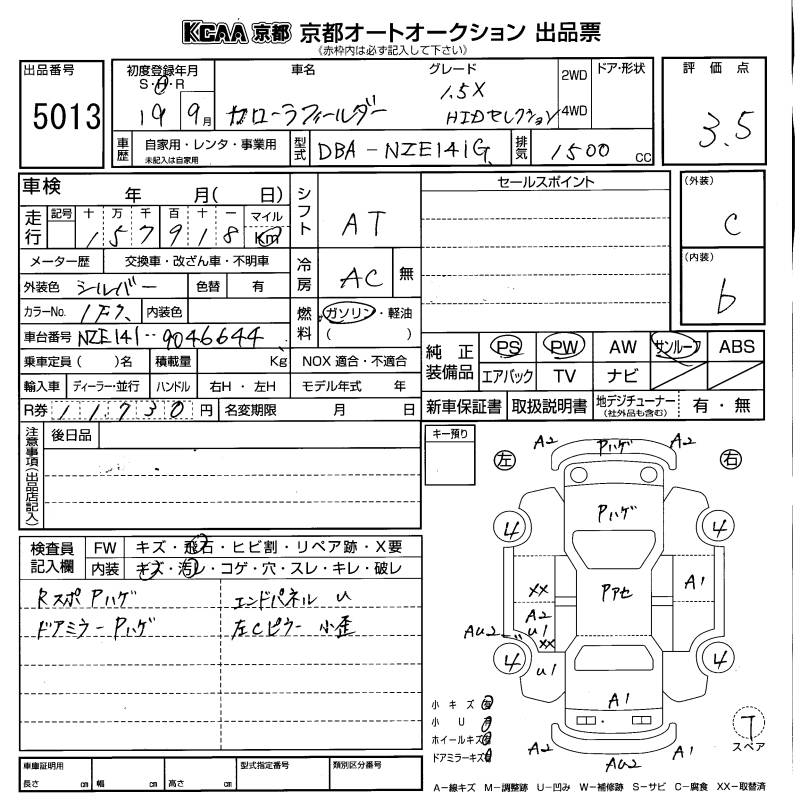 KCAA 京都 京都オートオークション 出品票
(赤枠内は必ず記入して下さい)
出品番号 5013
初度登録年月 S・H・R 19 9月
車名 カローラフィールダー
グレード 1.5X HIDセレクション
2WD 4WD
ドア・形状
評価点 3.5
車歴 自家用・レンタ・事業用 未記入は自家用
型式 DBA-NZE141G
排気 1500 cc
車検 年 月( 日)
走行 記号 十 万 千 百 十 一 マイル km
157918
シフト AT
メーター歴 交換車・改ざん車・不明車
外装色 シルバー 色替 有
冷房 AC 無
カラーNo. 1F7 内装色
燃料 ガソリン・軽油 ( )
車台番号 NZE141-9046644
乗車定員( )名 積載量 Kg NOX 適合・不適合
輸入車 ディーラー・並行 ハンドル 右H・左H モデル年式 年
R券 11730円 名変期限 月 日
セールスポイント
(外装) C
(内装) b
純正装備品 PS PW AW サンルーフ ABS
エアバック TV ナビ
新車保証書 取扱説明書 地デジチューナー (社外品も含む) 有・無
注意事項(出品店記入) 後日品
キー預り
検査員記入欄 FW キズ・飛石・ヒビ割・リペア跡・X要
内装 キズ・汚レ・コゲ・穴・スレ・キレ・破レ
Rスポ Pハゲ エンドパネル U
ドアミラーPハゲ 左Cピラー 小歪
A2 Pハゲ A2
左 右
4 Pハゲ 4
XX Pアセ A1
A2
AU2 U1
XX
4 U1 4
A1
小キズ 有
小U 有
ホイールキズ 有
ドアミラーキズ 有
A2 AU2 A1
T スペア
車庫証明用 型式指定番号 類別区分番号
長さ cm 幅 cm 高さ cm
A−線キズ M−調整跡 U−凹み W−補修跡 S−サビ C−腐食 XX−取替済